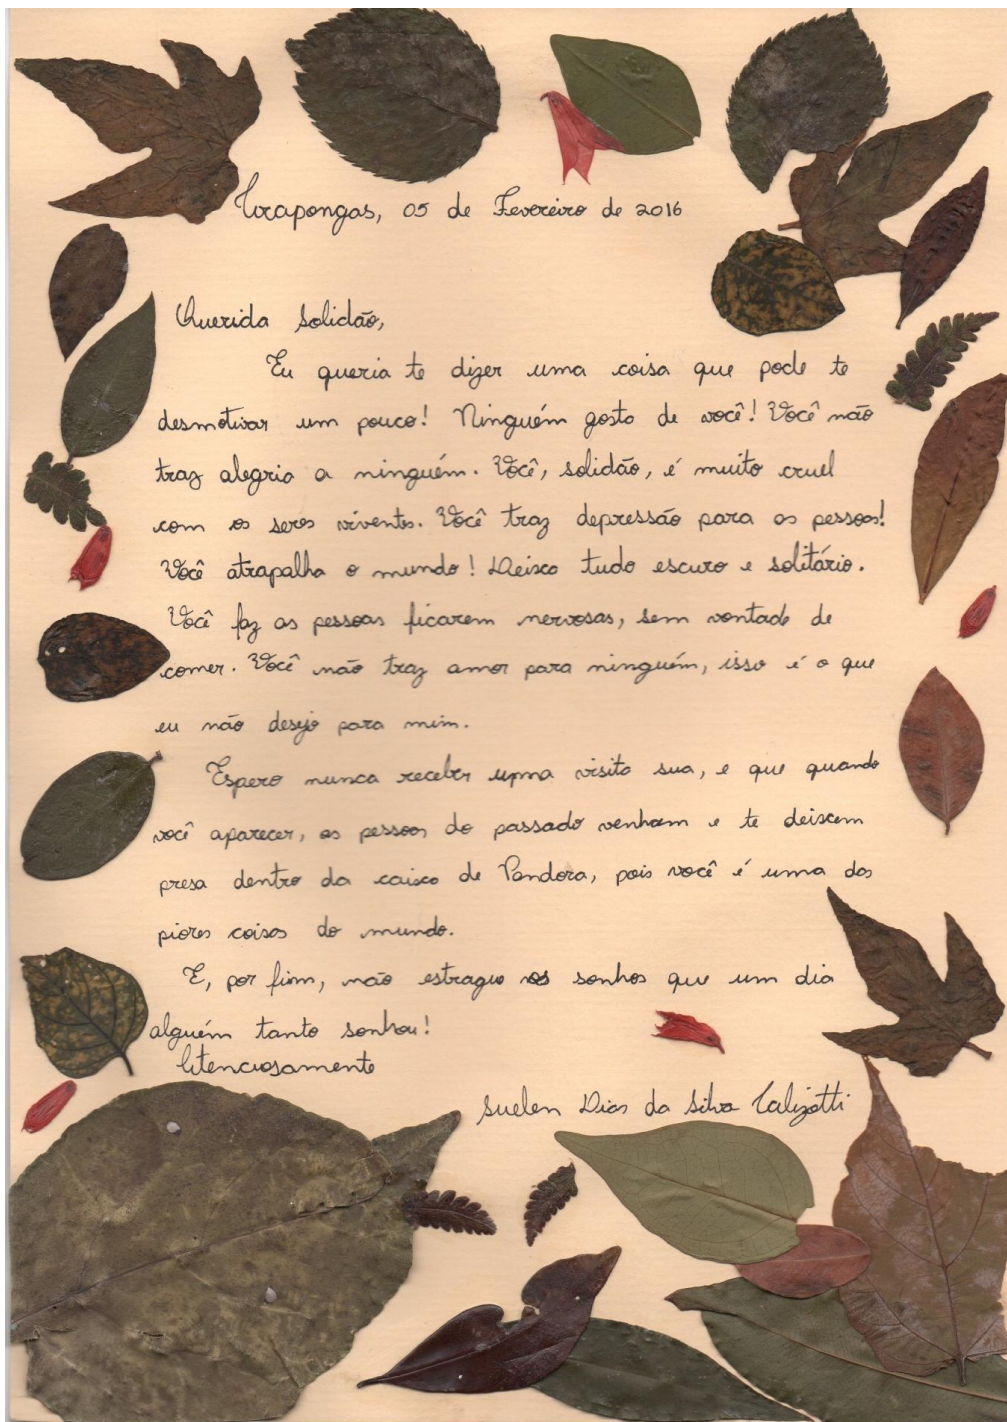 Arapongas, 05 de Fevereiro de 2016
Querida Solidão,
Eu queria te dizer uma coisa que pode te
desmotivar um pouco! Ninguém gosta de você! Você não
traz alegria a ninguém. Você, solidão, é muito cruel
com os seres viventes. Você traz depressão para as pessoas!
Você atrapalha o mundo! Deixa tudo escuro e solitário.
Você faz as pessoas ficarem nervosas, sem vontade de
comer. Você não traz amor para ninguém, isso é o que
eu não desejo para mim.
Espero nunca receber uma visita sua, e que quando
você aparecer, as pessoas do passado venham e te deixem
presa dentro da caixa de Pandora, pois você é uma das
piores coisas do mundo.
E, por fim, não estrague os sonhos que um dia
alguém tanto sonhou!
Atenciosamente
Suelen Dias da Silva